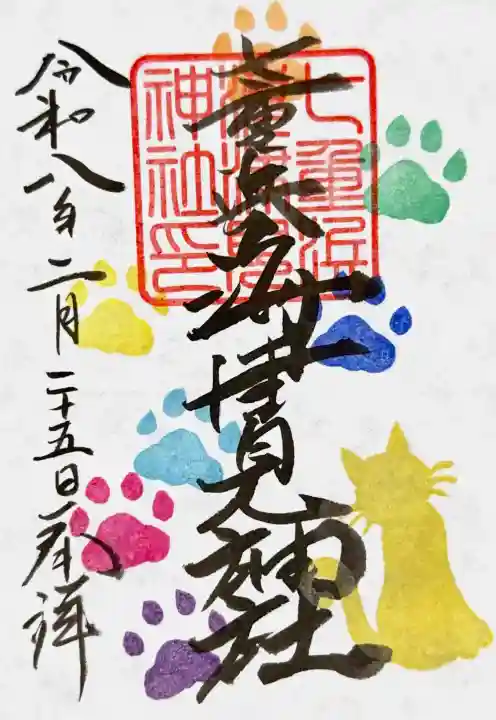 七重浜海津見神社
七重浜
神社印
令和八年二月二十五日奉拝